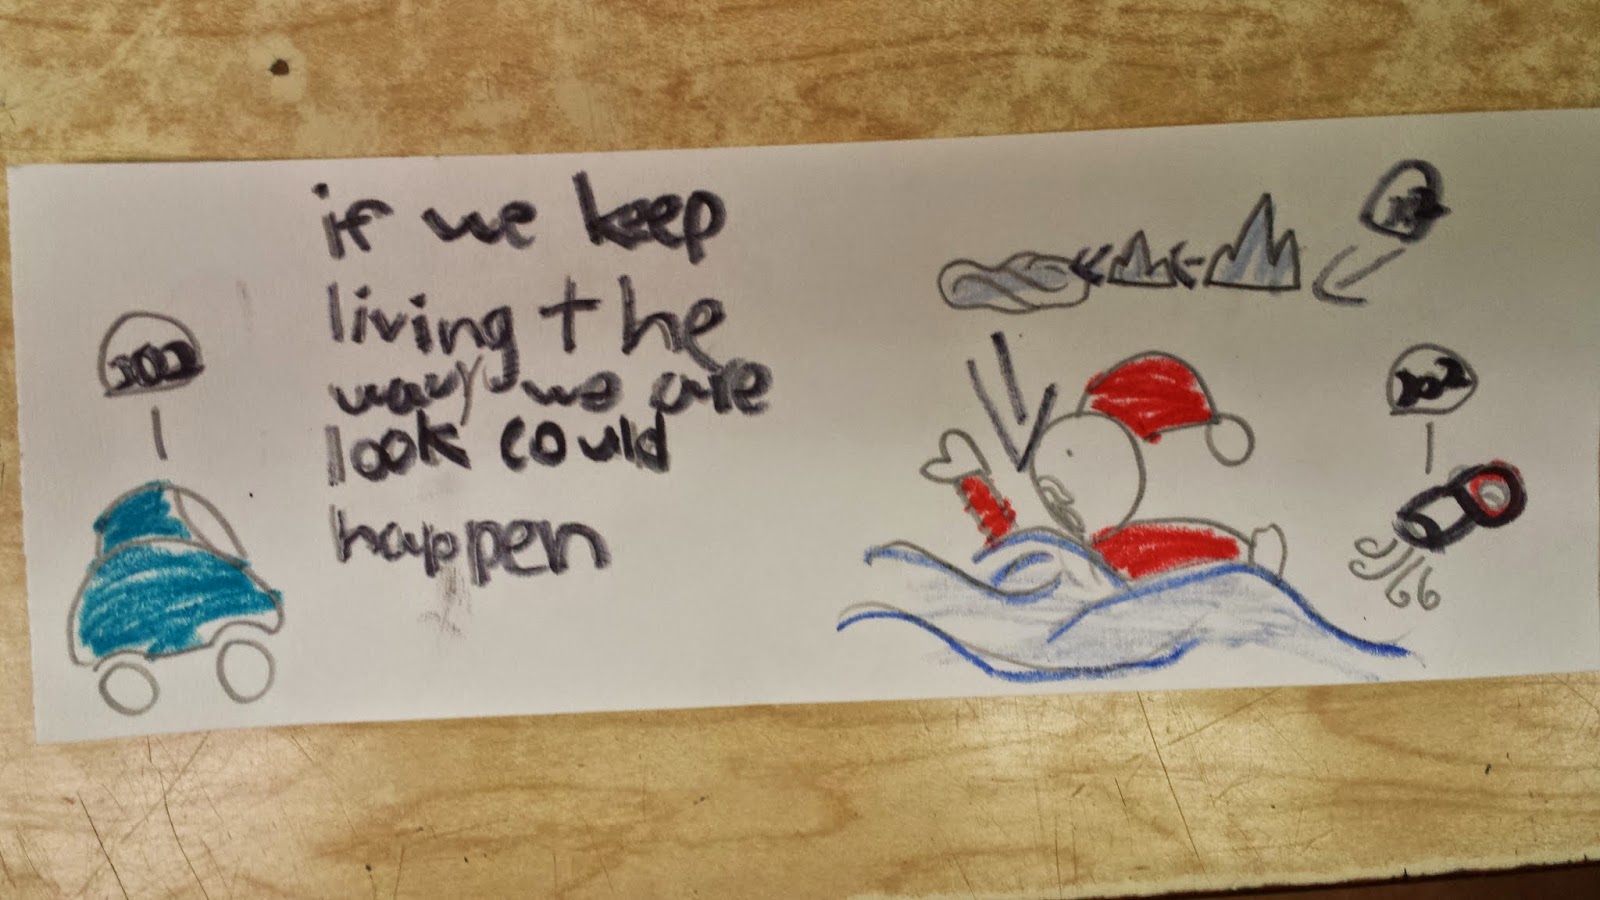 if we keep
living the
way we are
look could
happen